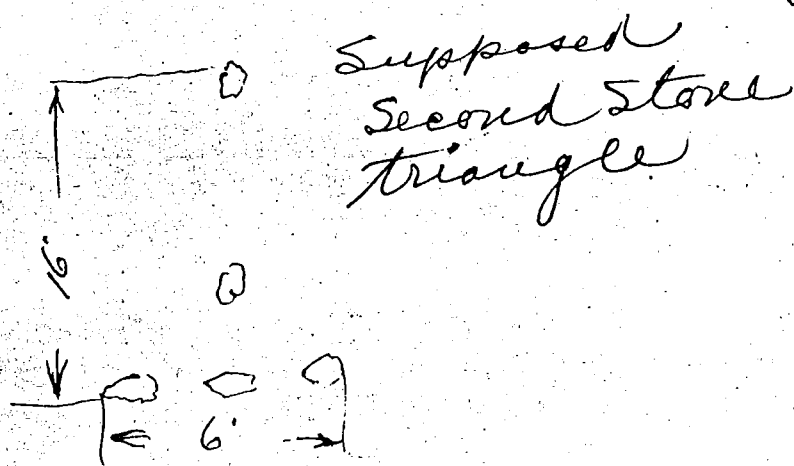 Supposed
Second Stone
triangle
16'
6'